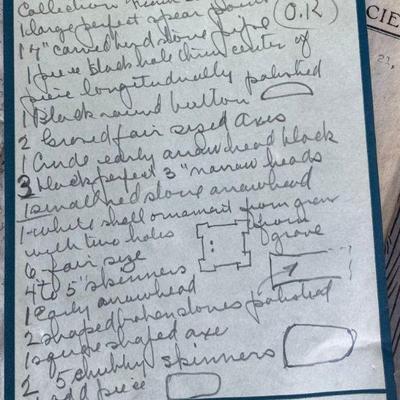 Collection
1 large perfect spear point
O.K
1 7" carved hard stone pipe
1 piece black hole thru center of
piece longitudinally polished
1 Black round button
2 Grooved fair sized axes
1 Crude early arrowhead black
3 black perfect 3" narrow heads
1 small red stone arrowhead
1-white shell ornament from grave
with two holes
from grave
6-fair size
4 to 5" spinners
1 Early arrowhead
2 shaped broken stones polished
1 square shaped axe
2 5 chubby spinners
1 odd piece
CIE
21,